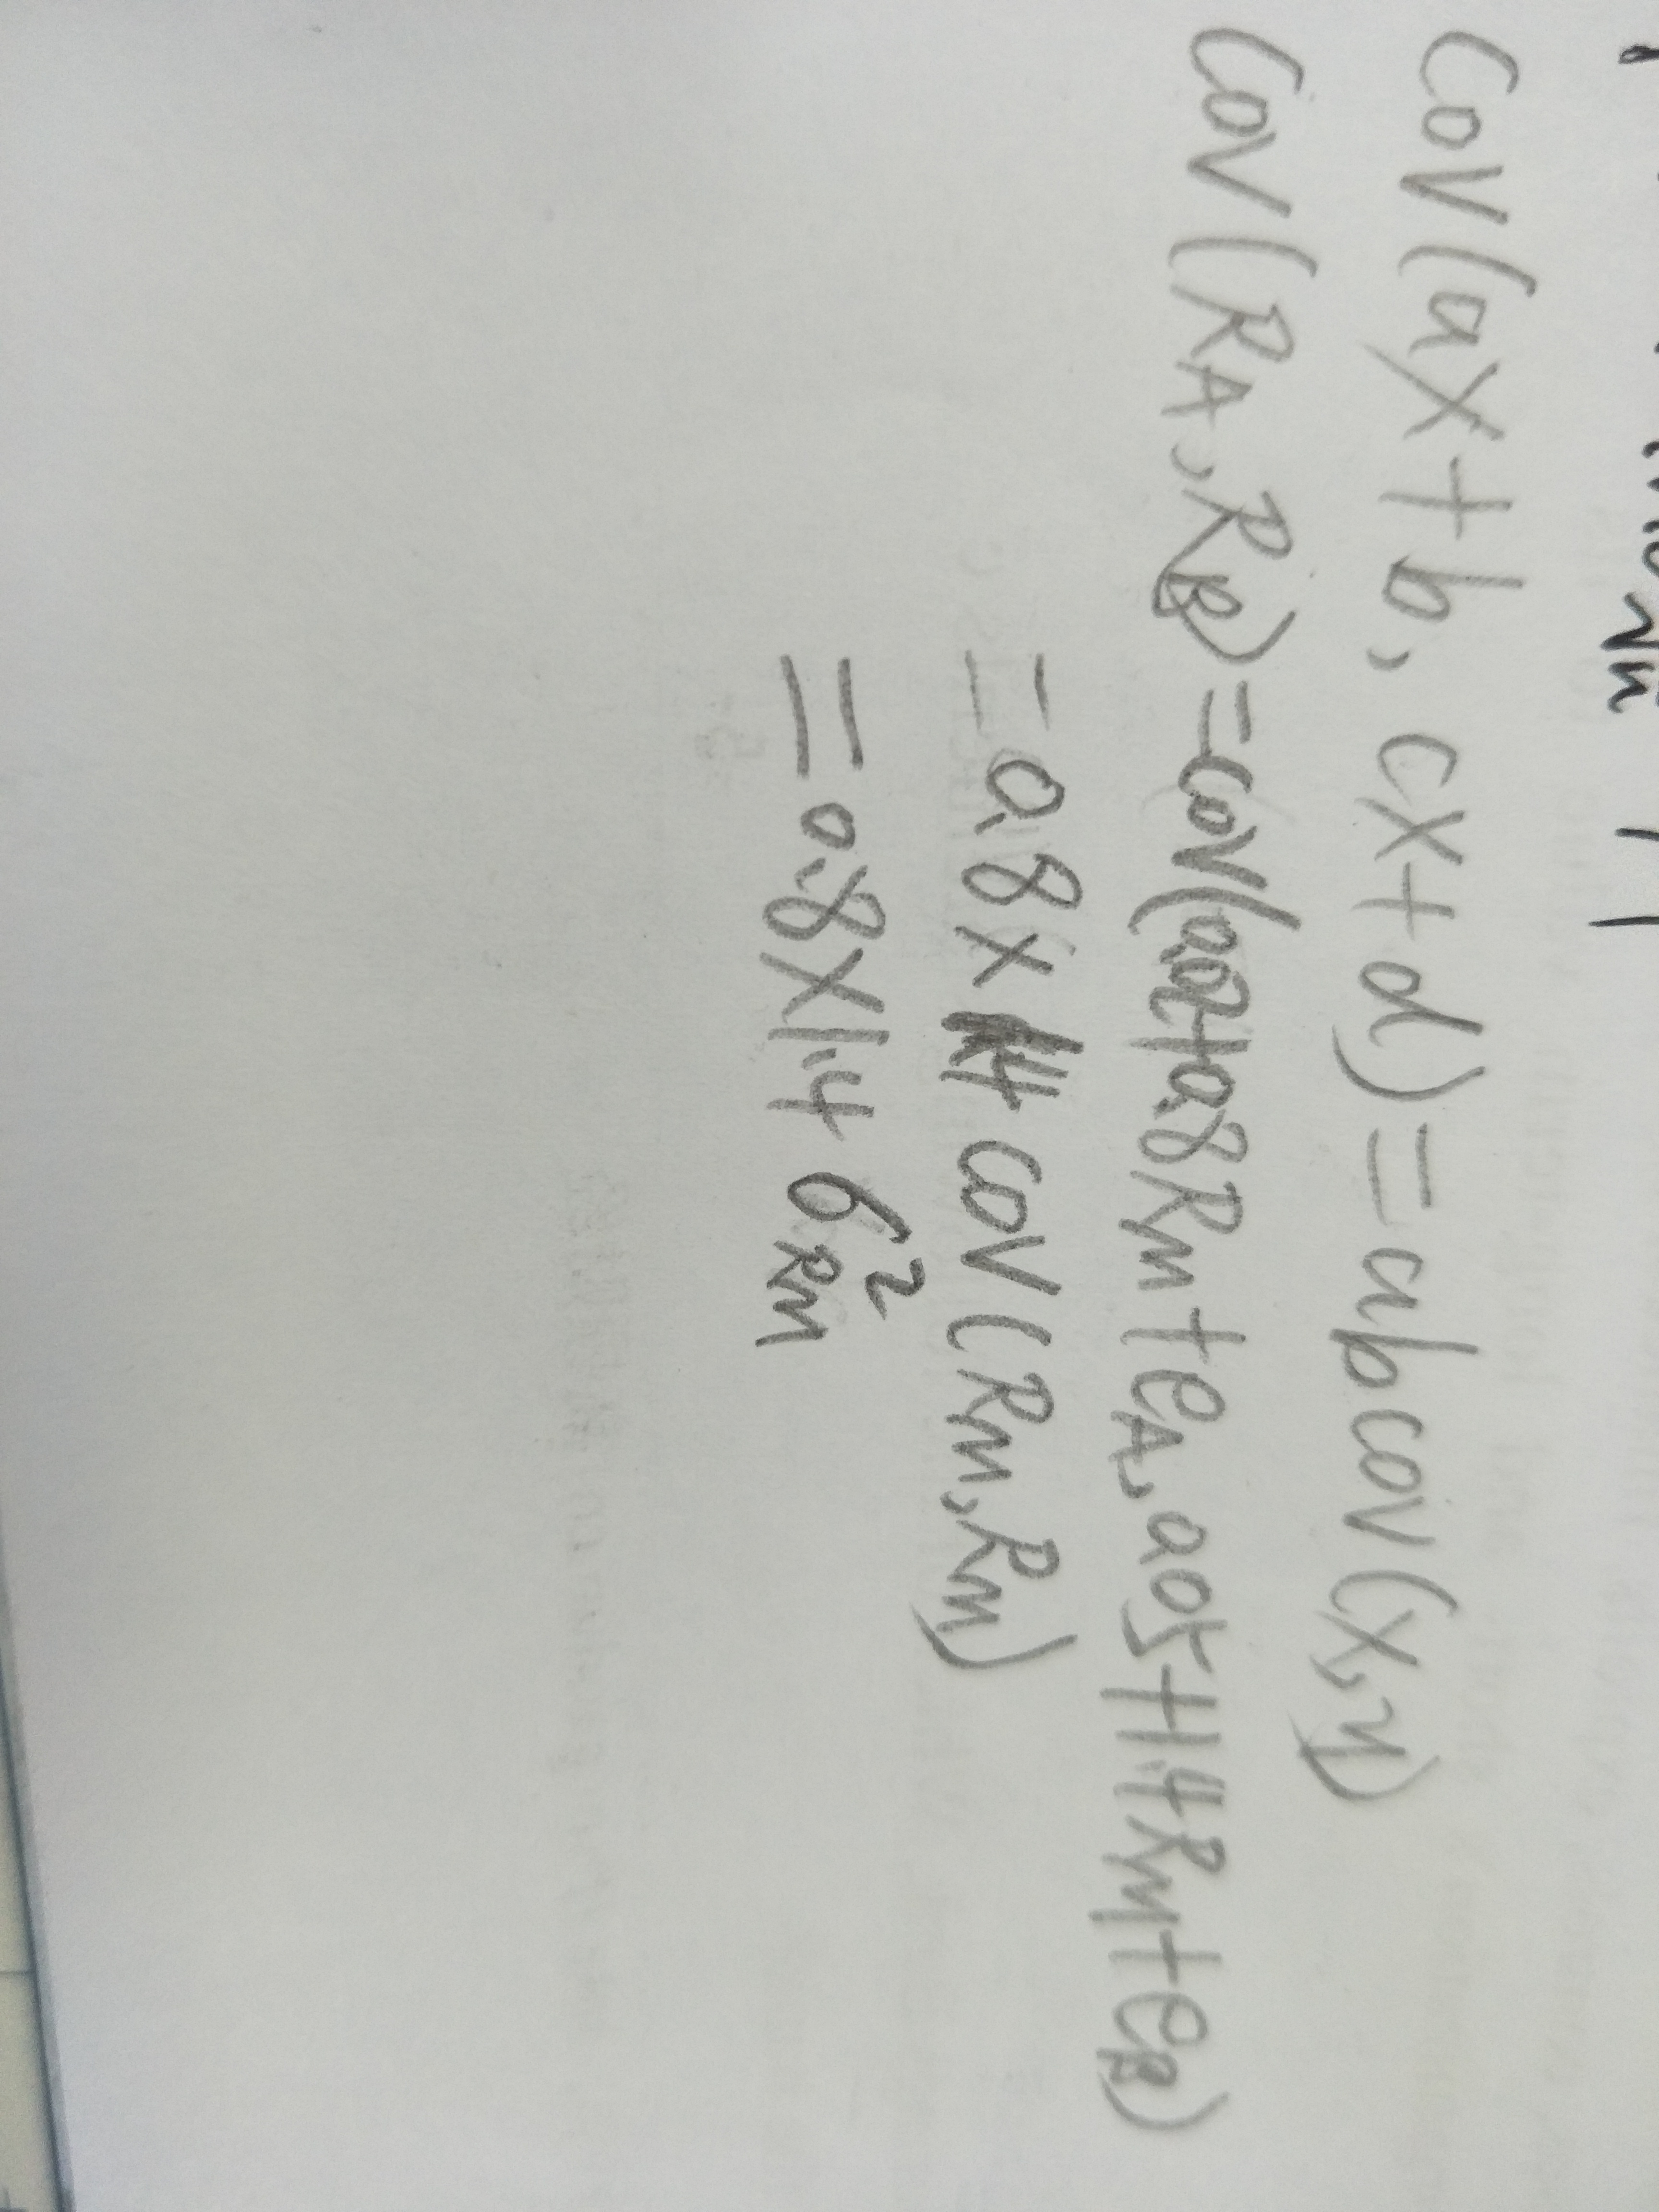 Cov(ax+b, cx+d)=abcov(x,y)
Cov(RA,RB)=cov(0.02+0.8Rm+eA,0.05+1.4Rm+eB)
=0.8x1.4cov(Rm,Rm)
=0.8x1.4σ²Rm